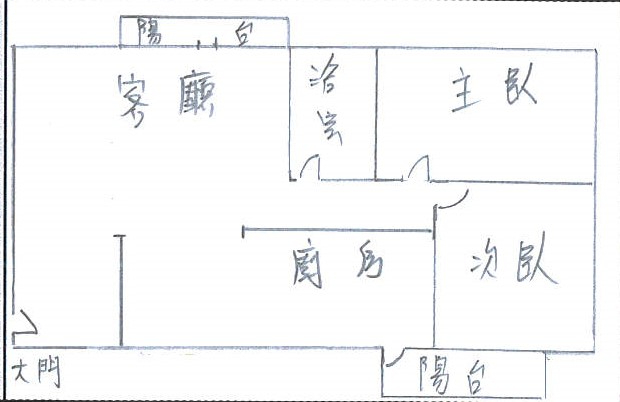 陽台
客廳
浴室
主臥
廚房
次臥
大門
陽台